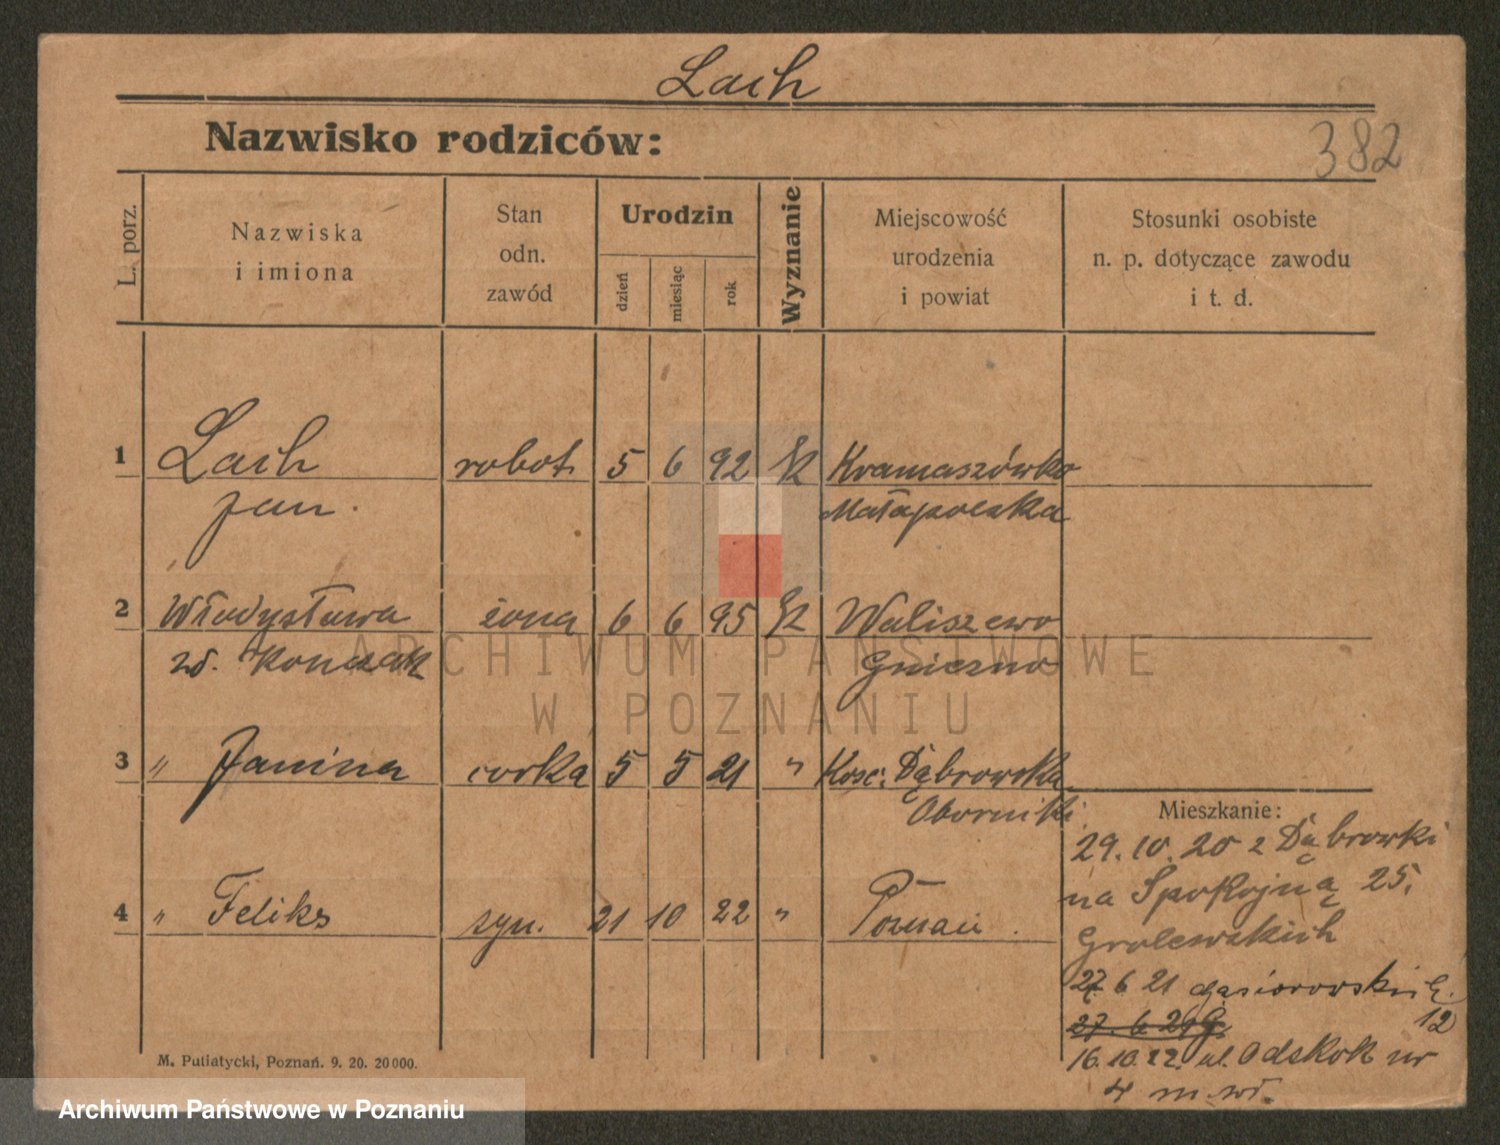 Lach
Nazwisko rodziców:
382
L. porz.
Nazwiska
i imiona
Stan
odn.
zawód
Urodzin
dzień
miesiąc
rok
Wyznanie
Miejscowość
urodzenia
i powiat
Stosunki osobiste
n. p. dotyczące zawodu
i t. d.
1 Lach robot. 5 6 92 Kramaszówka
Jan. Małapolska
2 Władysława żona 6 6 95 Waliszewo
zd. Konczak Gniezno
ARCHIWUM PAŃSTWOWE
W POZNANIU
3 " Janina corka 5 5 21 " Kosc. Dąbrowska
Oborniki
4 " Feliks syn. 21 10 22 " Poznań.
Mieszkanie:
29.10.20 z Dąbrowki
na Spokojną 25.
Grolewskich
27. 6 21 Gąsiorowskich
12
27. 6. 21 G
16.10.22. ul. Odskok nr
4 m.
M. Putiatycki, Poznań. 9. 20. 20 000.
Archiwum Państwowe w Poznaniu